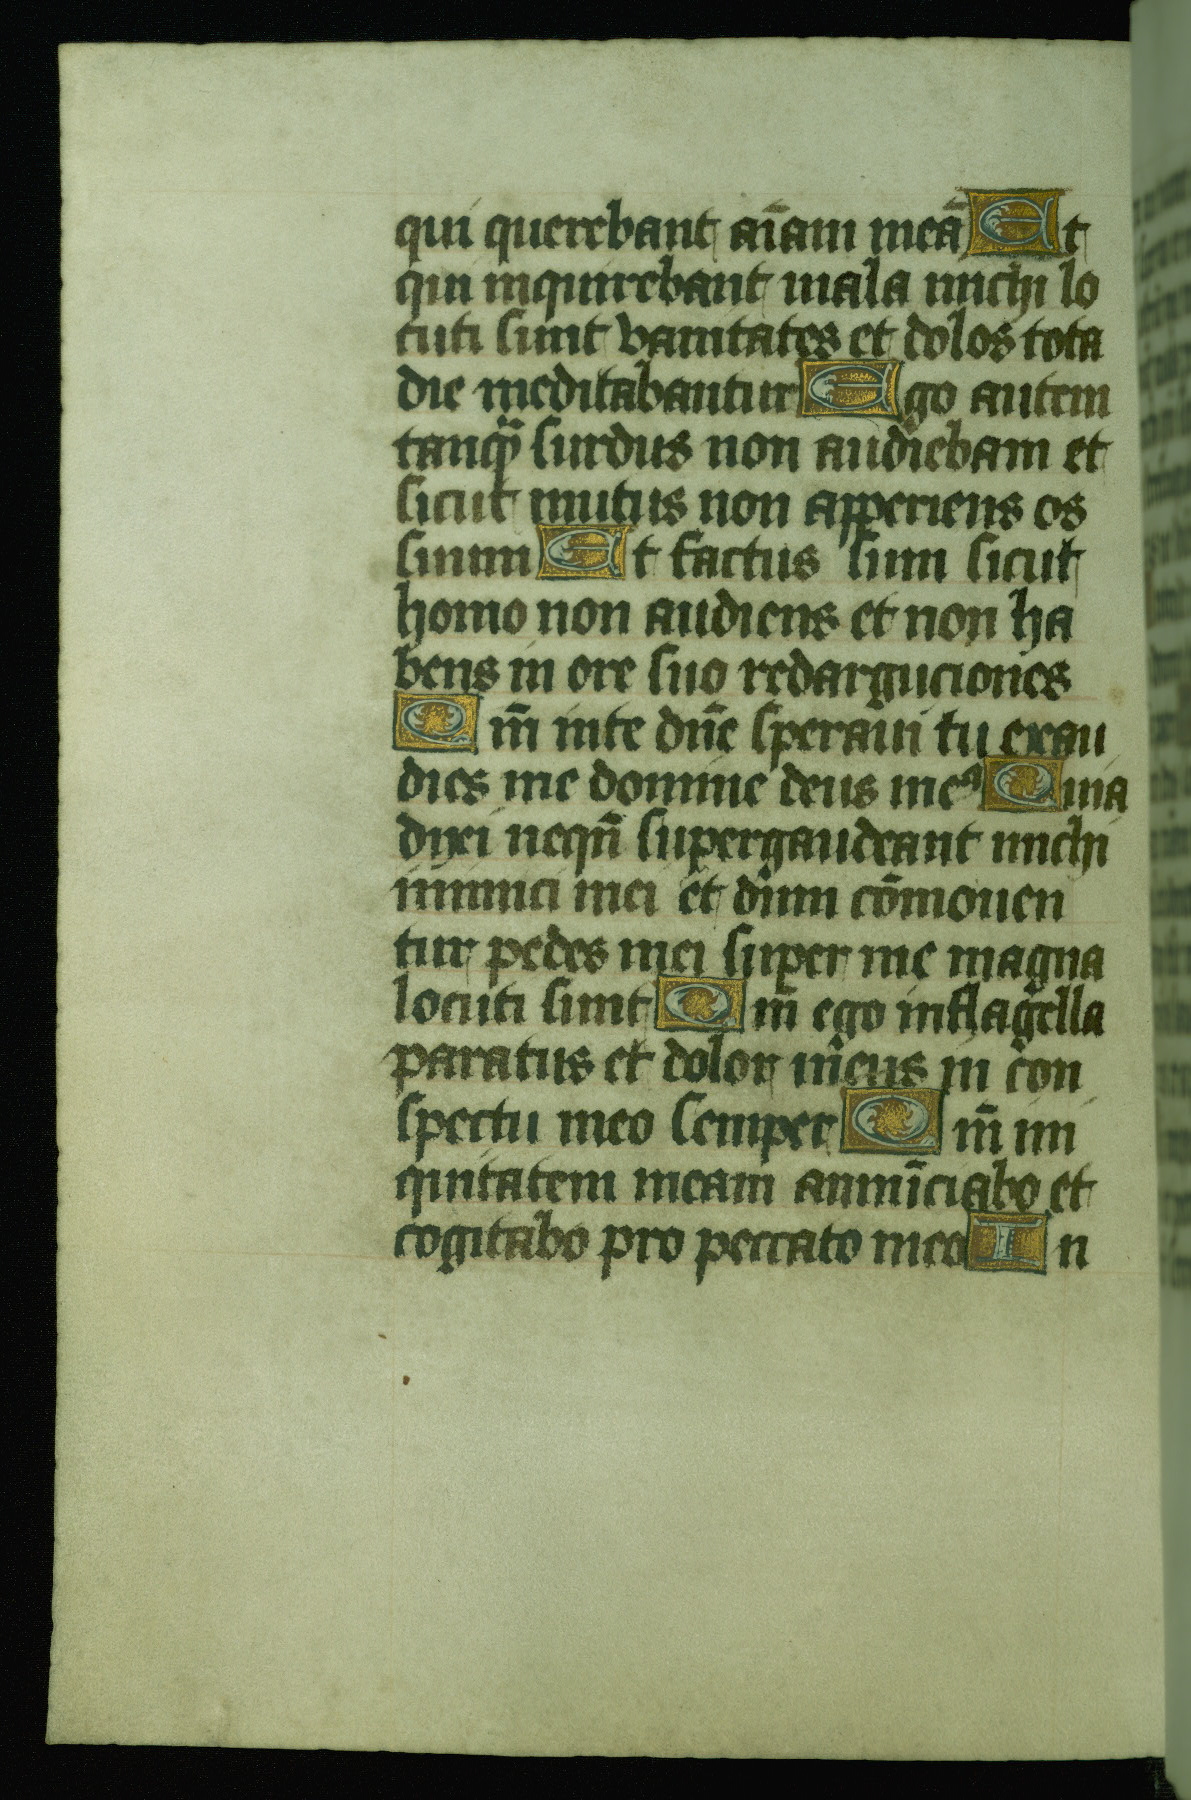 qui querebant aīam meā Et
qui inquirebant mala michi lo
cuti sunt vanitates et dolos tota
die meditabantur Ego autem
tanqᷓ surdus non audiebam et
sicut mutus non apperiens os
suum Et factus sum sicut
homo non audiens et non ha
bens in ore suo redarguciones
Qm̄ inte dn̄e speraui tu exau
dies me domine deus meꝰ Quia
dixi nequn̄ supergaudeant michi
inimici mei et dum cōmouen
tur pedes mei super me magna
locuti sunt Qm̄ ego inflagella
paratus et dolor meus in con
spectu meo semper Qm̄ ini
quitatem meam annūciabo et
cogitabo pro peccato meo In